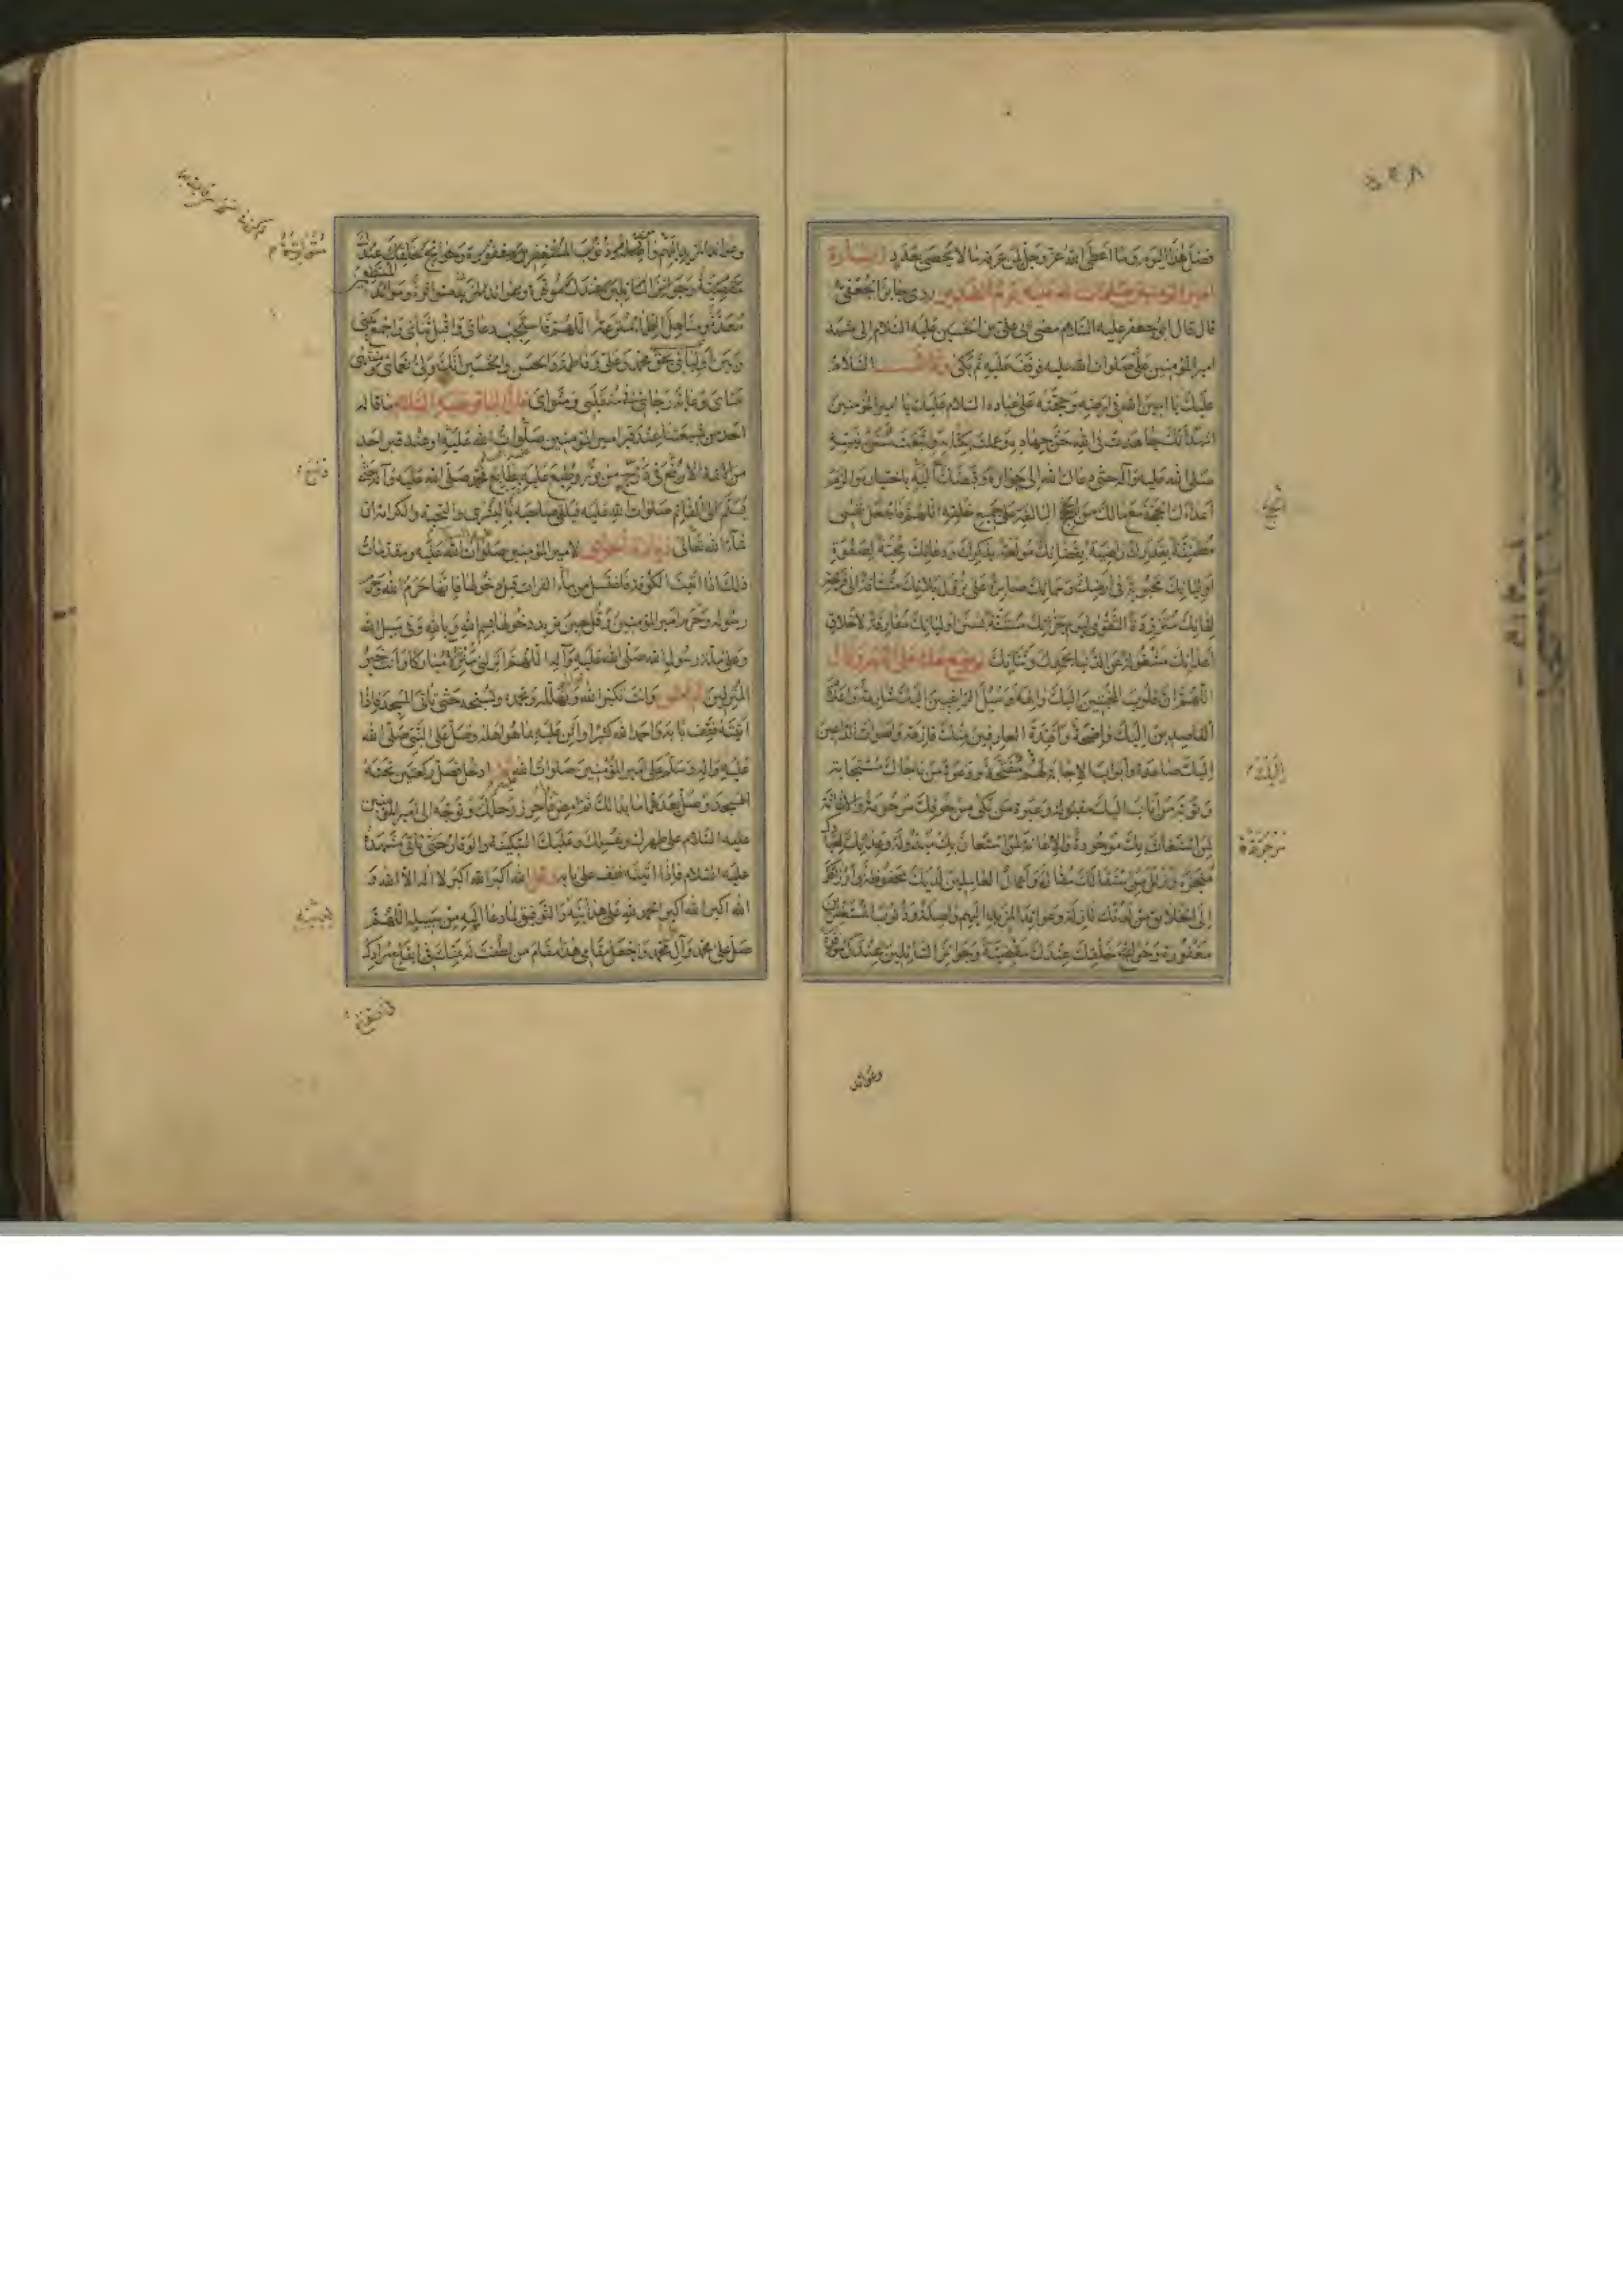 فضل هذا اليوم وما اعطى الله عز وجل لمن عرفه ما لا يحصى بعدد زيارة
امير المؤمنين صلوات الله عليه يوم الغدير روى جابر الجعفى
قال قال ابو جعفر عليه السلام مضى ابى على بن الحسين عليه السلام الى مشهد
امير المؤمنين على صلوات الله عليه فوقف عليه ثم بكى وقال السلام
عليك يا امين الله فى ارضه وحجته على عباده السلام عليك يا امير المؤمنين
اشهد انك جاهدت فى الله حق جهاده وعملت بكتابه واتبعت سنن نبيه
صلى الله عليه وآله حتى دعاك الله الى جواره وقبضك اليه باختياره والزم
اعداءك الحجة مع مالك من الحجج البالغة على جميع خلقه اللهم فاجعل نفسى
مطمئنة بقدرك راضية بقضائك مولعة بذكرك ودعائك محبة لصفوة
اوليائك محبوبة فى ارضك وسمائك صابرة على نزول بلائك مشتاقة الى فرحة
لقائك متزودة التقوى ليوم جزائك مستنة بسنن اوليائك مفارقة لاخلاق
اعدائك مشغولة عن الدنيا بحمدك وثنائك ثم وضع خده على القبر وقال
اللهم ان قلوب المخبتين اليك والهة وسبل الراغبين اليك شارعة واعلام
القاصدين اليك واضحة وافئدة العارفين منك فازعة واصوات الداعين
اليك صاعدة وابواب الاجابة لهم مفتحة ودعوة من ناجاك مستجابة
وتوبة من اناب اليك مقبولة وعبرة من بكى من خوفك مرحومة والاغاثة
لمن استغاث بك موجودة والاعانة لمن استعان بك مبذولة وعداتك لعبادك
منجزة وزلل من استقالك مقالة واعمال العاملين لديك محفوظة وارزاقك
الى الخلائق من لدنك نازلة وعوائد المزيد اليهم واصلة وذنوب المستغفرين
مغفورة وحوائج خلقك عندك مقضية وجوائز السائلين عندك موفرة
وعوائد
وعوائد المزيد اليهم واصلة وذنوب المستغفرين مغفورة وحوائج خلقك عندك
مقضية وجوائز السائلين عندك موفرة وعوائد المزيد متواترة وموائد
معدة ومناهل الظماء مترعة اللهم فاستجب دعائى واقبل ثنائى واجمع بينى
وبين اوليائى بحق محمد وعلى وفاطمة والحسن والحسين انك ولى نعمائى ومنتهى
مناى وغاية رجائى فى منقلبى ومثواى قال الباقر عليه السلام ما قاله
احد من شيعتنا عند قبر امير المؤمنين صلوات الله عليه او عند قبر احد
من الائمة الا رفع فى درج من نور وطبع عليه بطابع محمد صلى الله عليه وآله حتى
يسلم الى القائم صلوات الله عليه فيلقى صاحبه بالبشرى والتحية والكرامة ان
شاء الله تعالى زيارة اخرى لامير المؤمنين صلوات الله عليه ومقدمات
ذلك اذا اتيت الكوفة فاغتسل من ماء الفرات قبل دخولها فانها حرم الله وحرم
رسوله وحرم امير المؤمنين وقل حين تريد دخولها بسم الله وبالله وفى سبيل الله
وعلى ملة رسول الله صلى الله عليه وآله اللهم انزلنى منزلا مباركا وانت خير
المنزلين ثم امش وانت تكبر الله وتهلله وتحمده وتسبحه حتى تأتى المسجد فاذا
اتيته فقف بابه واحمد الله كثيرا واثن عليه بما هو اهله وصل على النبى صلى الله
عليه وآله وسلم على امير المؤمنين صلوات الله ثم ادخل فصل ركعتين تحية
المسجد وصل بعدهما ما بدا لك ثم امض فاحرز رحلك وتوجه الى امير المؤمنين
عليه السلام على طهرك وغسلك وعليك السكينة والوقار حتى تأتى مشهده
عليه السلام فاذا اتيته فقف على بابه وقل الله اكبر الله اكبر لا اله الا الله و
الله اكبر الله اكبر الحمد لله على هدايته والتوفيق لما دعا اليه من سبيله اللهم
صل على محمد وآل محمد واجعل مقامى هذا مقام من لطفت له بمنك فى ايقاع مرادك